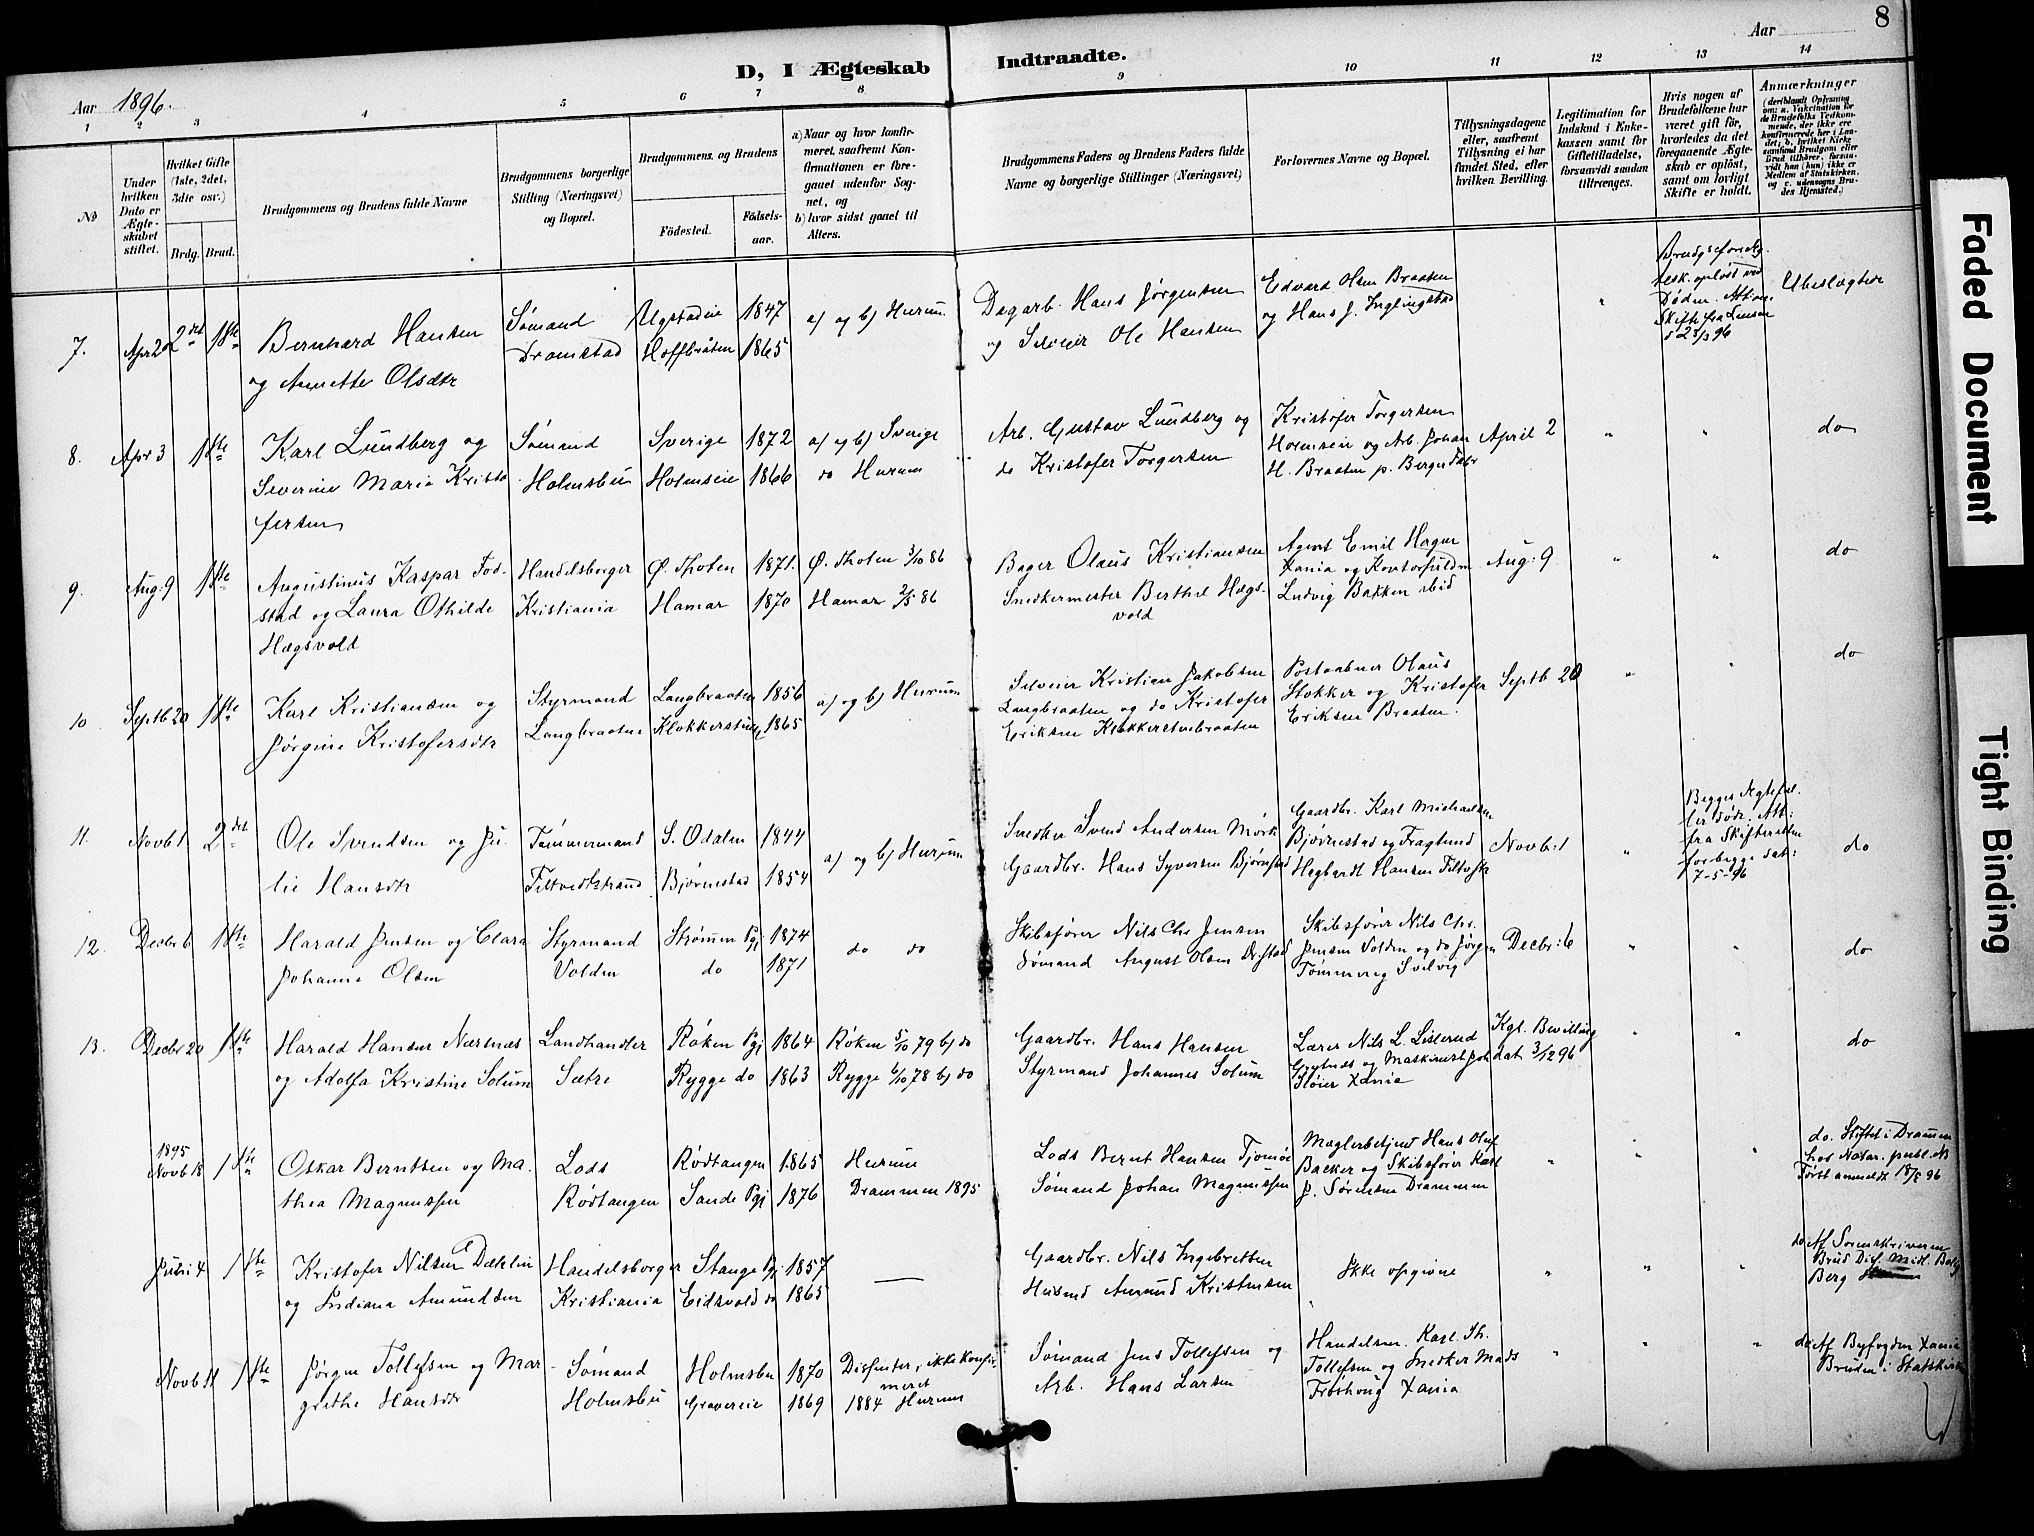 8
Aar
D, I Ægteskab Indtraadte.
Aar 1896.
1 2 3 4 5 6 7 8 9 10 11 12 13 14
No
Under hvilken Dato er Ægteskabet stiftet.
Hvilket Gifte (1ste, 2det, 3dte osv.)
Brdg. Brud.
Brudgommens og Brudens fulde Navne
Brudgommens borgerlige Stilling (Næringsvei) og Bopæl.
Brudgommens og Brudens
Födested.
Födsels-aar.
a) Naar og hvor konfirmeret, saafremt Konfirmationen er foregaaet udenfor Sognet, og
b) hvor sidst gaaet til Alters.
Brudgommens Faders og Brudens Faders fulde Navne og borgerlige Stillinger (Næringsvei)
Forlovernes Navne og Bopæl.
Tillysningsdagene eller, saafremt Tillysning ei har fundet Sted, efter hvilken Bevilling.
Legitimation for Indskud i Enkekassen samt for Giftetilladelse, forsaavidt saadan tiltrænges.
Hvis nogen af Brudefolkene har været gift för, hvorledes da det foregaaende Ægteskab er oplöst, samt om lovligt Skifte er holdt.
Anmærkninger
(deriblandt Oplysning om: a. Vakcination for de Brudefolks Vedkommende, der ikke ere konfirmerede her i Landet; b. hvilket Kirkesamfund Brudgom eller Brud tilhörer, forsaavidt han (hun) ikke er Medlem af Statskirken, og c. udensogns Brudes Hjemsted.)
7. Apr 20 2det 1ste
Bernhard Hansen
og Annette Olsdtr
Sømand
Dramstad
Hoffbråten
1847
1865
a) og b) Hurum.
Dagarb. Hans Jørgensen
og Selveier Ole Hansen
Edvard Olsen Braaten
og Hans J. Inglingstad
opløst ved
Døden. Attest.
Skifte fra
d 23/3 96
Ubeslægtede
8. Apr 3 1ste
Karl Lundberg og
Severine Maria Kristo
fersen
Sømand
Holmsbu
Sverige
Holmseie
1872
1866
a) og b) Sverige
do Hurum
Arb. Gustav Lundberg og
do Kristofer Torgersen
Kristofer Torgersen
og Arb. Johan
H. Braaten p.
April 2
do
9. Aug: 9 1ste
Augustinus Kaspar Fod-
stad og Laura Othilde
Hægsvold
Handelsborger
Kristiania
Ø. Thoten
Hamar
1871.
1870
Ø. Thoten 3/10 86
Hamar 2/5 86
Bager Olaus Kristiansen
Snedkermester Berthel Hægs-
vold
Agent Emil Hagne
Xania og
Ludvig Bakken ibid
Aug: 9
do
10. Septb 20 1ste
Karl Kristiansen og
Jørgine Kristofersdtr
Styrmand
Langbraaten
Langbraaten
Klokkerstue
1856
1865
a) og b) Hurum
Selveier Kristian Jakobsen
Langbraaten og do Kristofer
Eriksen Klokkerstuebraaten
Postaabner Olaus
Stokker og Kristofer
Eriksen Braaten.
Septb 20
do
11. Novb 1 2det
Ole Svendsen og Ju-
lie Hansdtr
Tømmermand
Filtvedtstrand
S. Odalen
Bjørnestad
1844
1854
a) og b) Hurum
Snedker Svend Andersen Mørk
Gaardbr. Hans Syversen Bjørnstad
Gaardbr. Karl Michaelsen
Bjørnestad og
Hegbardt Hansen Filtvstr
Novb: 1
Begges Ægtefæl-
ler døde. Att:
fra Skifteretten
for begge dat:
7-5-96
do
12. Decbr 6 1ste
Harald Jensen og Clara
Johanne Olsen
Styrmand
Volden
Strømm Pgj
do
1874
1871
do do
Skibsfører Nils Chr Jensen
Sømand August Olsen
Skibsfører Nils Chr.
Jensen Volden og do Jørgen
Tømmerog Svelvig
Decbr: 6
do
13. Decbr 20 1ste
Harald Hansen Nærsnæs
og Adolfa Kristine Solum
Landhandler
Sætre
Røken Pgj
Rygge do
1864
1863
Røken 5/10 79 b) do
Rygge 6/10 78 b) do
Gaardbr. Hans Hansen
Styrmand Johannes Solum
Lærer Nils L. Lislerud
og Maskinist Joh
Xania
Kgl. Bevilling
dat 3/12 96
do
1895
Novb 18 1ste
Oskar Berntsen og Ma-
thea Magnussen
Lods
Rødtangen
Rødtangen
Sande Pgj
1865
1876
Hurum
Drammen 1895
Lods Bernt Hansen Tjomøe
Sømand Johan Magnussen
Mæglerbetjent Hans Oluf
Backer og Skibsfører Karl
J. Sørensen Drammen
do. Stiftet i Drammen
hos Notar. publ. NB
Først anmeldt 18/5 96
Juli 4 1ste
Kristofer Nilsen Dæhlin
og Indiana Amundsen
Handelsborger
Kristiania
Stange Pgj
Eidsvold do
1857
1865
Gaardbr. Nils Ingebretsen
Husmd Amund Kristensen
Ikke opgivne
do Af Sorenskriveren
Berg
Novb 11 1ste
Jørgen Tollefsen og Mar-
grethe Hansdtr
Sømand
Holmsbu
Holmsbu
Graverie
1870
1869
Dissenter, ikke konfir-
meret
1884 Hurum
Sømand Jens Tollefsen og
Arb. Hans Larsen
Handelsm. Karl Th.
Tollefsen og Snedker Mads
Frøshoug Xania
do Af Byfogden Xania
Bruden i Statskirken
Faded Document
Tight Binding